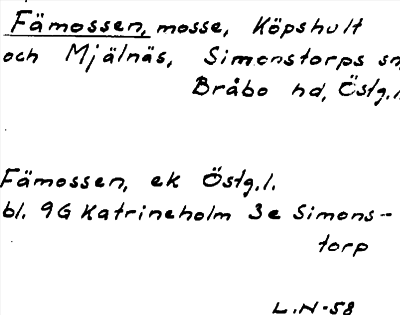 Fämossen, mosse, Köpshult
och Mjälnäs, Simonstorps sn,
Bråbo hd, Östg.l.
Fämossen, ek Östg.l.
bl. 9G Katrineholm 3e Simons-
torp
L.N-58